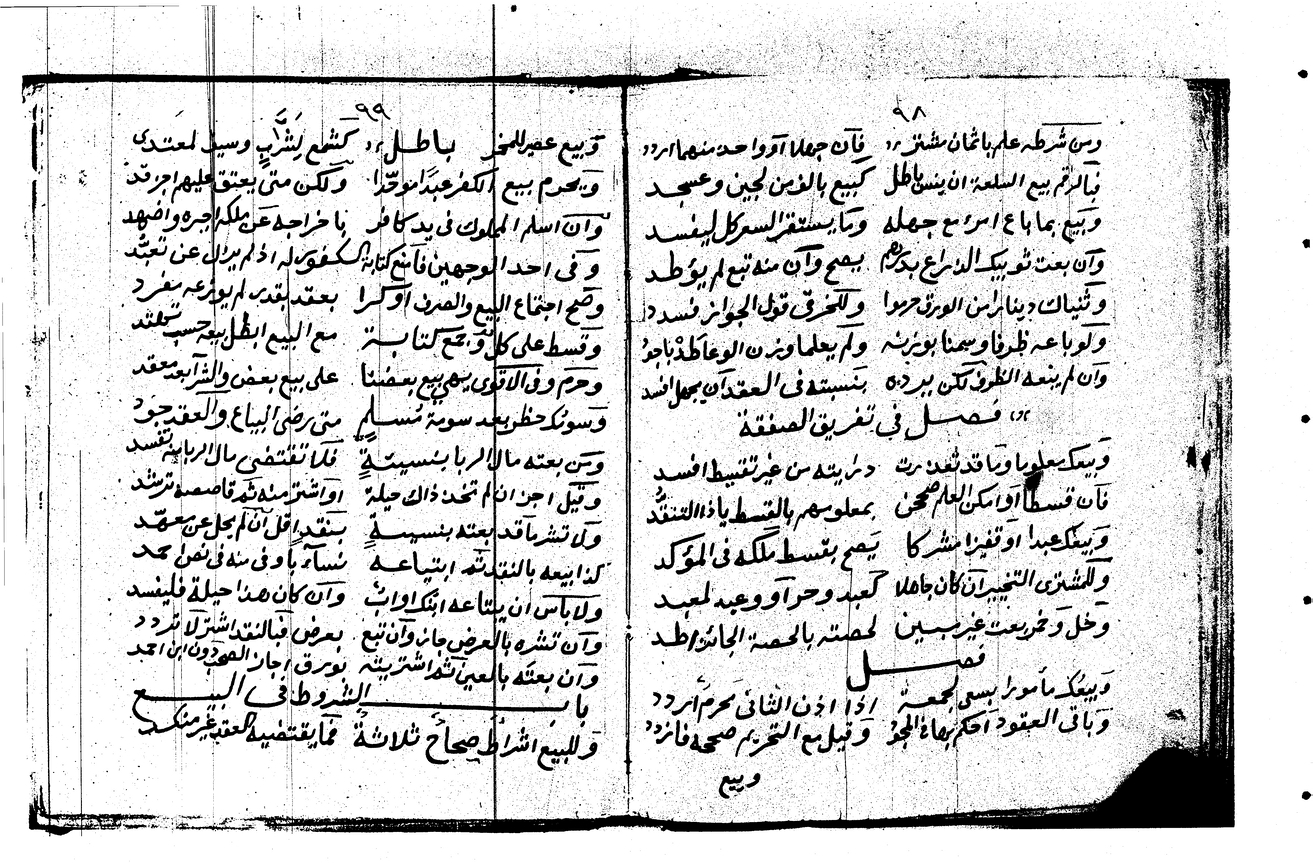 ٩٨
ومن شرطه علم باثمان مشتر فان جهلا او واحد منهما اردد
فبالرقم بيع السلعة ان ينس باطل كبيع بالف من لجين وعسجد
وبيع بما باع امرؤ مع جهله وما يستقر السعر كل ليفسد
وان بعت ثوبيك الذراع بدرهم يصح وان منه تبع لم يؤطد
وثنياك دينارا من الورق حرموا وللخرقي قول الجواز فسدد
ولو باعه ظرفا وسمنا بوزنه ولم يعلما وزن الوعا
وان لم ينفعه الظرف لكن يرده بنسبته في العقد ان يجهل افسد
فصل في تفريق الصفقة
وبيعك معلوما وما قد تعذرت درايته من غير تقسيط افسد
فان قسطا او امكن العلم صححن بمعلومهم بالقسط ياذا التنقد
وبيعك عبدا او قفيزا مشركا يصح بقسط ملكه في المؤكد
وللمشتري التخيير ان كان جاهلا كعبد وحر او وعبد لمعبد
وخل وخمر بعت غير مبين لحصته بالحصة الجائز اطد
فصل
وبيعك مأمورا بسعي لجمعة اذا اذن الثاني محرم اردد
وباقي العقود احكم بها في المجود وقيل مع التحريم صححه فانزدد
وبيع
٩٩
وبيع عصير للمخمر باطل كشمع لشرب وسيف لمعتدي
ويحرم بيع الكفر عبدا موحدا ولكن متى يعتق عليهم اجز قد
وان اسلم المملوك في يد كافر باخراجه عن ملكه اجبره واضهد
وفي احد الوجهين فامنع كتابة الكفور له اذ لم يزل عن تعبد
وصح اجتماع البيع والصرف او كرا بعقد بقدر لم يوزعه مفرد
وقسط على كل وجمع كتابة مع البيع ابطل بيعه حسب تهتد
وحرم وفي الاقوى يهي بيع بعضنا على بيع بعض والشرا بعد معقد
وسومك حظر بعد سومة مسلم متى رضي البياع والعقد جود
ومن بعته مال الربا بنسيئة فلا تقتضي مال الربا منه تفسد
وقيل اجز ان لم تخذ ذاك حيلة او اشتر منه ثم قاصصه ترشد
ولا تشر ما قد بعته بنسيئة بنقد اقل ان لم يحل عن معهد
كذا بيعه بالنقد ثم ابتياعه نساء باوفى منه في نص احمد
ولا بأس ان يبتاعه ابنك او اب وان كان هذا حيلة فليفسد
وان تشره بالعرض جاز وان تبع بعرض فبالنقد اشتر لا تردد
وان بعته بالعين ثم اشتريته بورق اجاز الصحب دون ابن احمد
باب الشروط في البيع
وللبيع اشراط صحاح ثلاثة فما يقتضيه العقد غير منكد